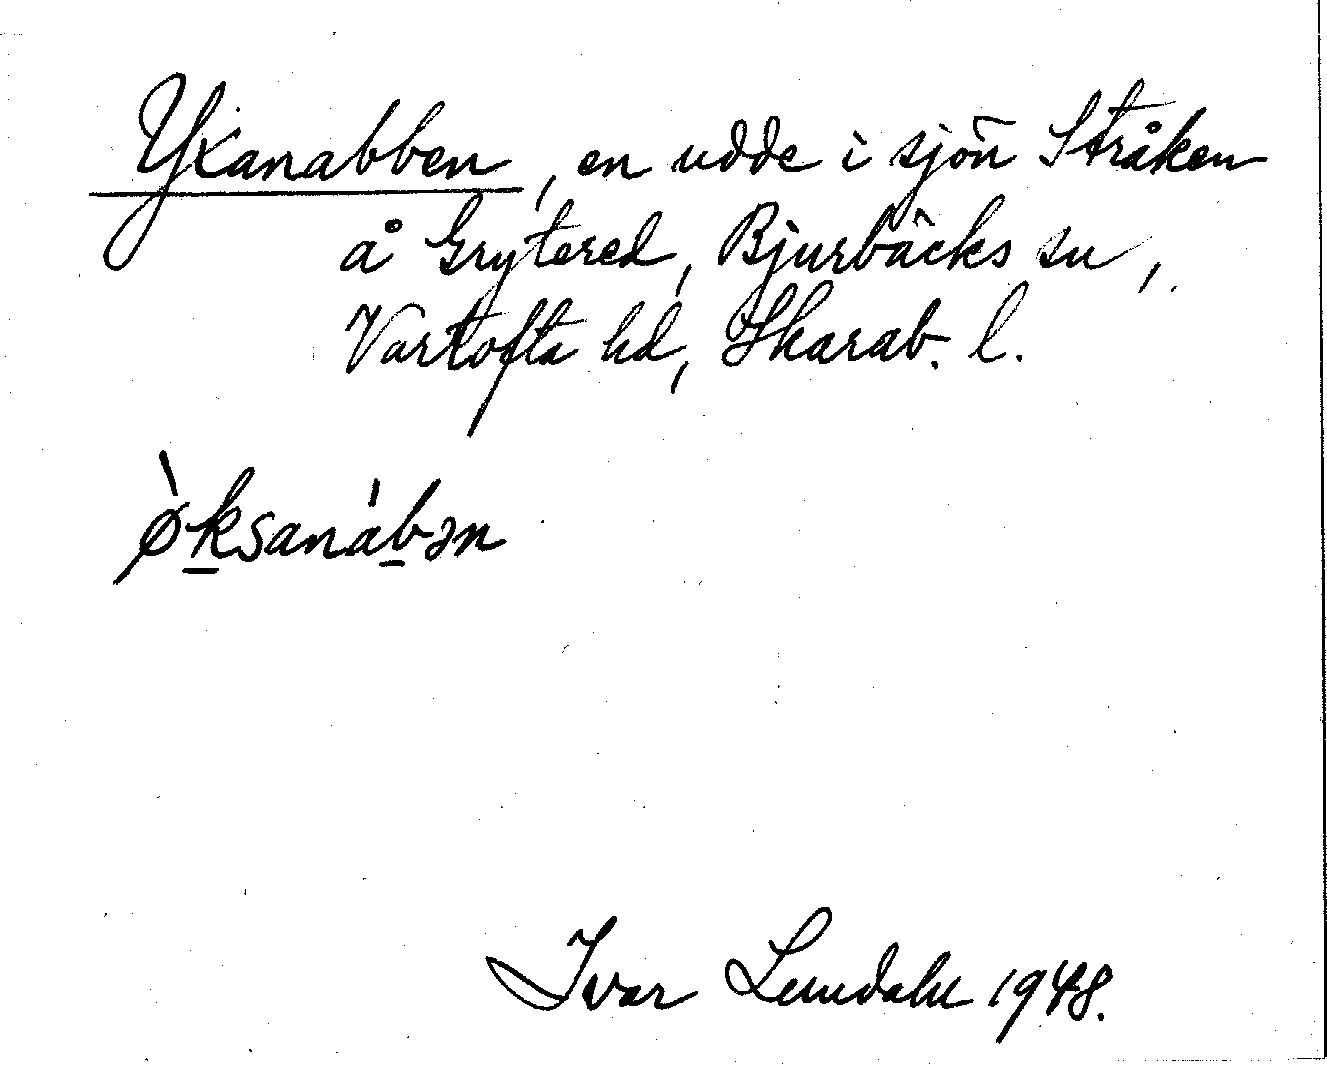 Yxanabben, en udde i sjön Stråken
å Grytered, Bjurbäcks sn,
Vartofta hd, Skarab. l.
ø̀ksanábən
Ivar Lundahl 1948.